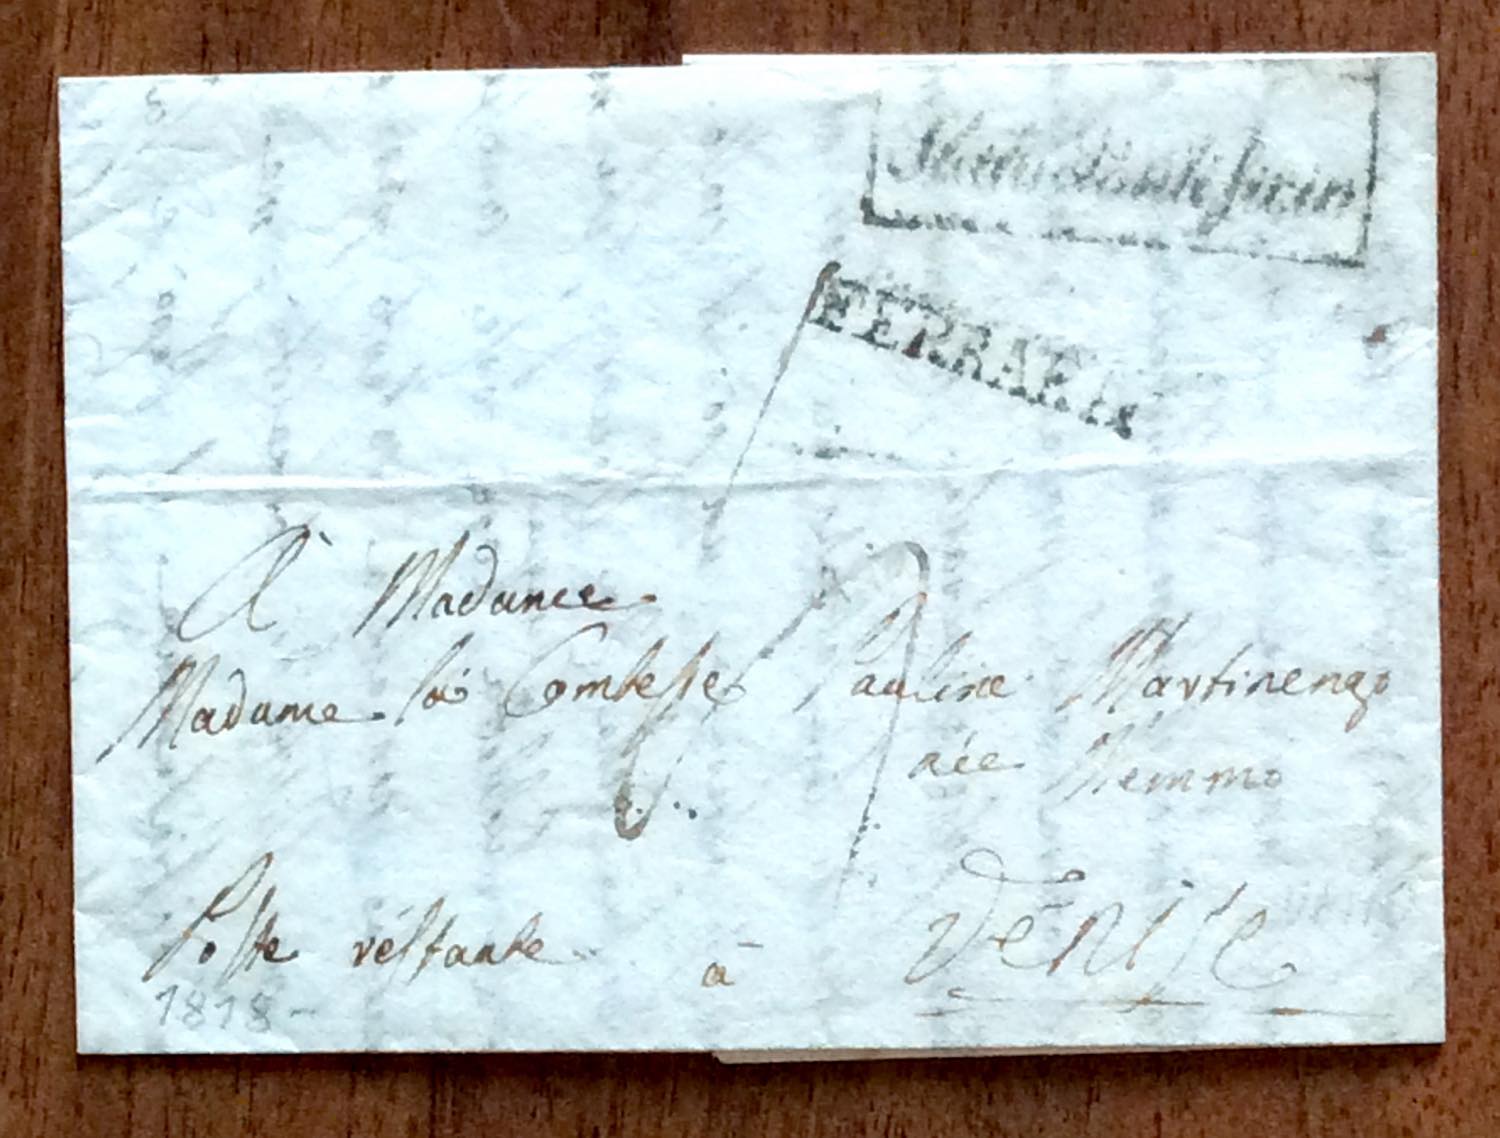 Stato Pontificio
FERRARA
À Madame
Madame la Comtesse Pauline Martinengo
née Memmo
Poste réstante à Vénise
1818-